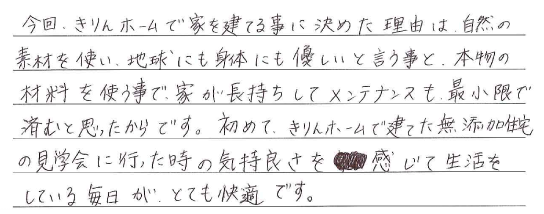 今回、きりんホームで家を建てる事に決めた理由は、自然の
素材を使い、地球にも身体にも優しいと言う事と、本物の
材料を使う事で、家が長持ちしてメンテナンスも、最小限で
済むと思ったからです。初めて、きりんホームで建てた無添加住宅
の見学会に行った時の気持良さを感じて生活を
している毎日が、とても快適です。